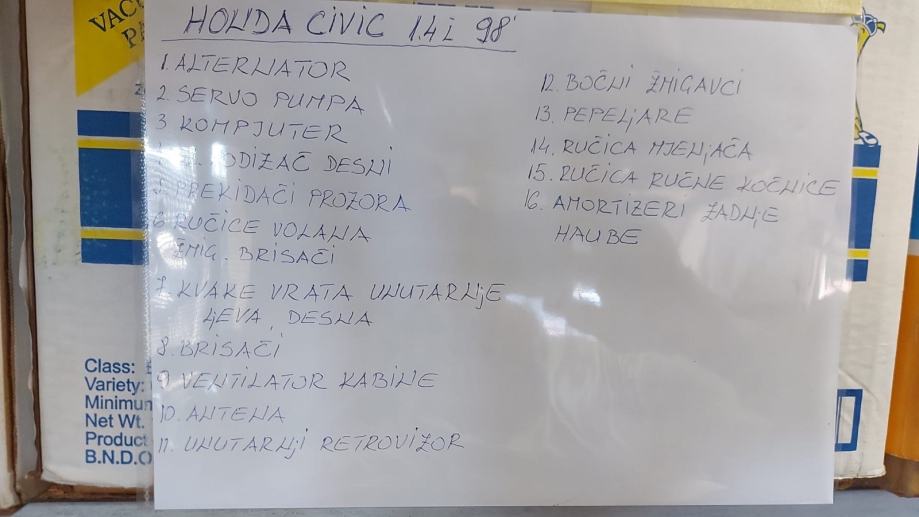 HONDA CIVIC 1.4i 98'
1. ALTERNATOR
2. SERVO PUMPA
3. KOMPJUTER
PODIZAČ DESNI
5. PREKIDAČI PROZORA
6. RUČICE VOLANA
ŽMIG. BRISAČI
7. KVAKE VRATA UNUTARNjE
LjEVA, DESNA
8. BRISAČI
9. VENTILATOR KABINE
10. ANTENA
11. UNUTARNji RETROVIZOR
12. BOČNI ŽMIGAVCI
13. PEPELjARE
14. RUČICA MJENjAČA
15. RUČICA RUČNE KOČNICE
16. AMORTIZERI ZADNjE
HAUBE
VAC
PA
Class:
Variety:
Minimum
Net Wt.
Product
B.N.D.O